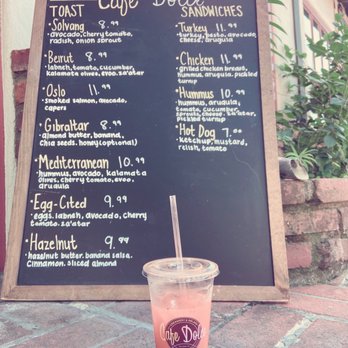 Cafe Dolce
TOAST
·Solvang 8.99
avocado, cherry tomato,
radish, onion sprout
·Beirut 8.99
labneh, tomato, cucumber,
kalamata olives, evoo, za'atar
·Oslo 11.99
smoked salmon, avocado,
capers
·Gibraltar 8.99
almond butter, banana,
chia seeds. honey (optional)
·Mediterranean 10.99
hummus, avocado, kalamata
olives, cherry tomato, evoo,
arugula
·Egg-Cited 9.99
·eggs. labneh, avocado, cherry
tomato. za'atar
·Hazelnut 9.99
·hazelnut butter. banana salsa.
Cinnamon. sliced almond
SANDWICHES
·Turkey 11.99
·turkey, pesto, avocado,
cheese, arugula
·Chicken 11.99
·grilled chicken breast,
hummus, arugula, pickled
turnip
·Hummus 10.99
·hummus, arugula,
tomato, cucumber
sprouts, cheese, za'atar,
pickled turnip
·Hot Dog 7.00
·ketchup, mustard,
relish, tomato
Cafe Dolce